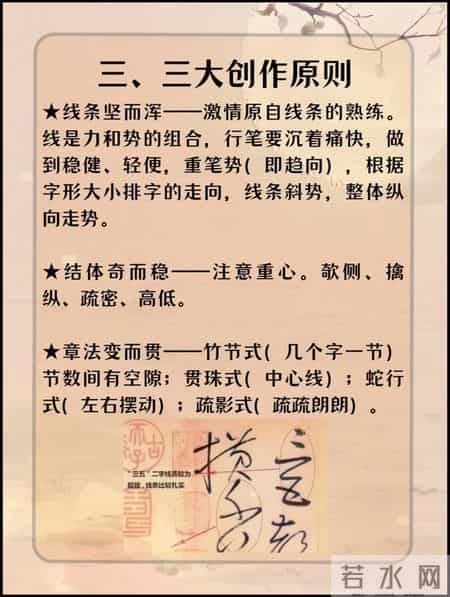 三、三大创作原则
★线条坚而浑——激情原自线条的熟练。
线是力和势的组合，行笔要沉着痛快，做
到稳健、轻便，重笔势(即趋向)，根据
字形大小排字的走向，线条斜势，整体纵
向走势。
★结体奇而稳——注意重心。欹侧、擒
纵、疏密、高低。
★章法变而贯——竹节式(几个字一节)
节数间有空隙；贯珠式(中心线)；蛇行
式(左右摆动)；疏影式(疏疏朗朗)。
"三五"二字线质较为
线条比较扎实
若水网